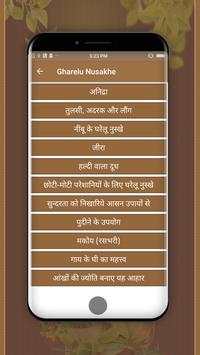 5:23 PM
Gharelu Nusakhe
अनिद्रा
तुलसी, अदरक और लौंग
नींबू के घरेलू नुस्खे
जीरा
हल्दी वाला दूध
छोटी-मोटी परेशानियों के लिए घरेलू नुस्खे
सुन्दरता को निखारिये आसन उपायों से
पुदीने के उपयोग
मकोय (रसभरी)
गाय के घी का महत्त्व
आंखों की ज्योति बनाए यह आहार